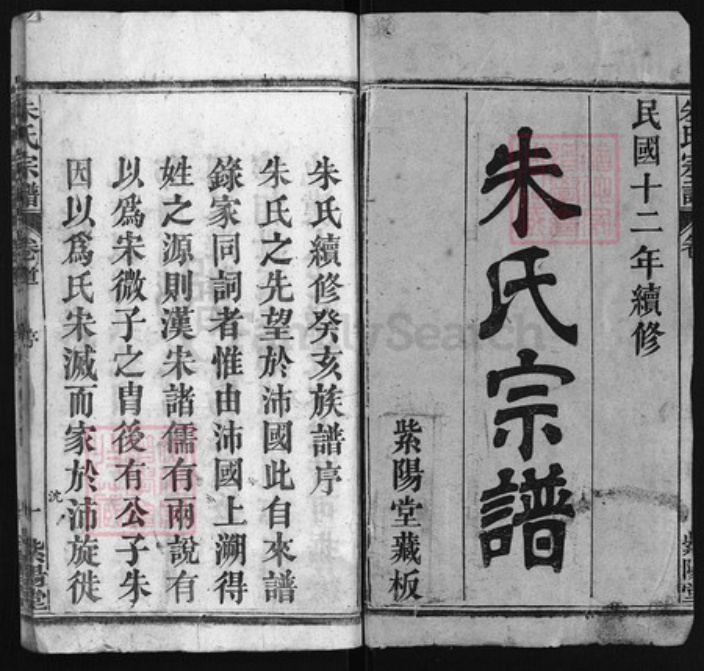 民國十二年續修
朱氏宗譜
紫陽堂藏板
朱氏續修癸亥族譜序
朱氏之先望於沛國此自來譜
錄家同詞者惟由沛國上溯得
姓之源則漢宋諸儒有兩說有
以爲宋微子之冑後有公子朱
因以爲氏宋滅而家於沛旋徙
沈
朱氏宗譜
卷首
序
一
紫陽堂
朱氏宗譜
卷
紫陽堂
FamilySearch